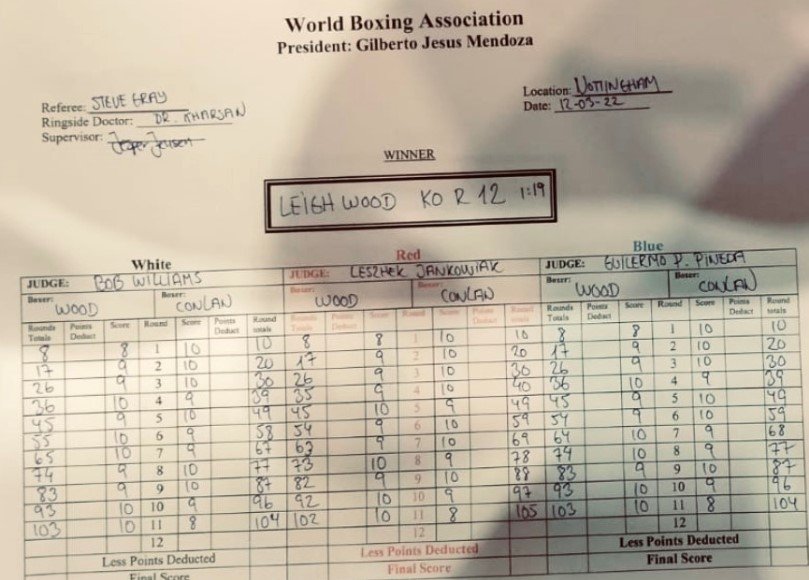 World Boxing Association
President: Gilberto Jesus Mendoza
Referee: STEVE GRAY
Ringside Doctor: DR. KHARSAN
Supervisor: Jesper Jensen
Location: NOTTINGHAM
Date: 12-03-22
WINNER
LEIGH WOOD KO R 12 1:19
White Red Blue
JUDGE: BOB WILLIAMS JUDGE: LESZHEK JANKOWIAK JUDGE: GUILERMO P. PINEDA
Boxer: WOOD Boxer: CONLAN Boxer: WOOD Boxer: CONLAN Boxer: WOOD Boxer: CONLAN
Rounds Totals Points Deduct Score Round Score Points Deduct Round totals Rounds Totals Points Deduct Score Round Score Points Deduct Round totals Rounds Totals Points Deduct Score Round Score Points Deduct Round totals
8 8 1 10 10 8 8 1 10 10 8 8 1 10 10
17 9 2 10 20 17 9 2 10 20 17 9 2 10 20
26 9 3 10 30 26 9 3 10 30 26 9 3 10 30
36 10 4 9 39 35 9 4 10 40 36 10 4 9 39
45 9 5 10 49 45 10 5 9 49 45 9 5 10 49
55 10 6 9 58 54 9 6 10 59 54 9 6 10 59
65 10 7 9 67 63 9 7 10 69 64 10 7 9 68
74 9 8 10 77 73 10 8 9 78 74 10 8 9 77
83 9 9 10 87 82 9 9 10 88 83 9 9 10 87
93 10 10 9 96 92 10 10 9 97 93 10 10 9 96
103 10 11 8 104 102 10 11 8 105 103 10 11 8 104
12 12 12
Less Points Deducted Less Points Deducted Less Points Deducted
Final Score Final Score Final Score